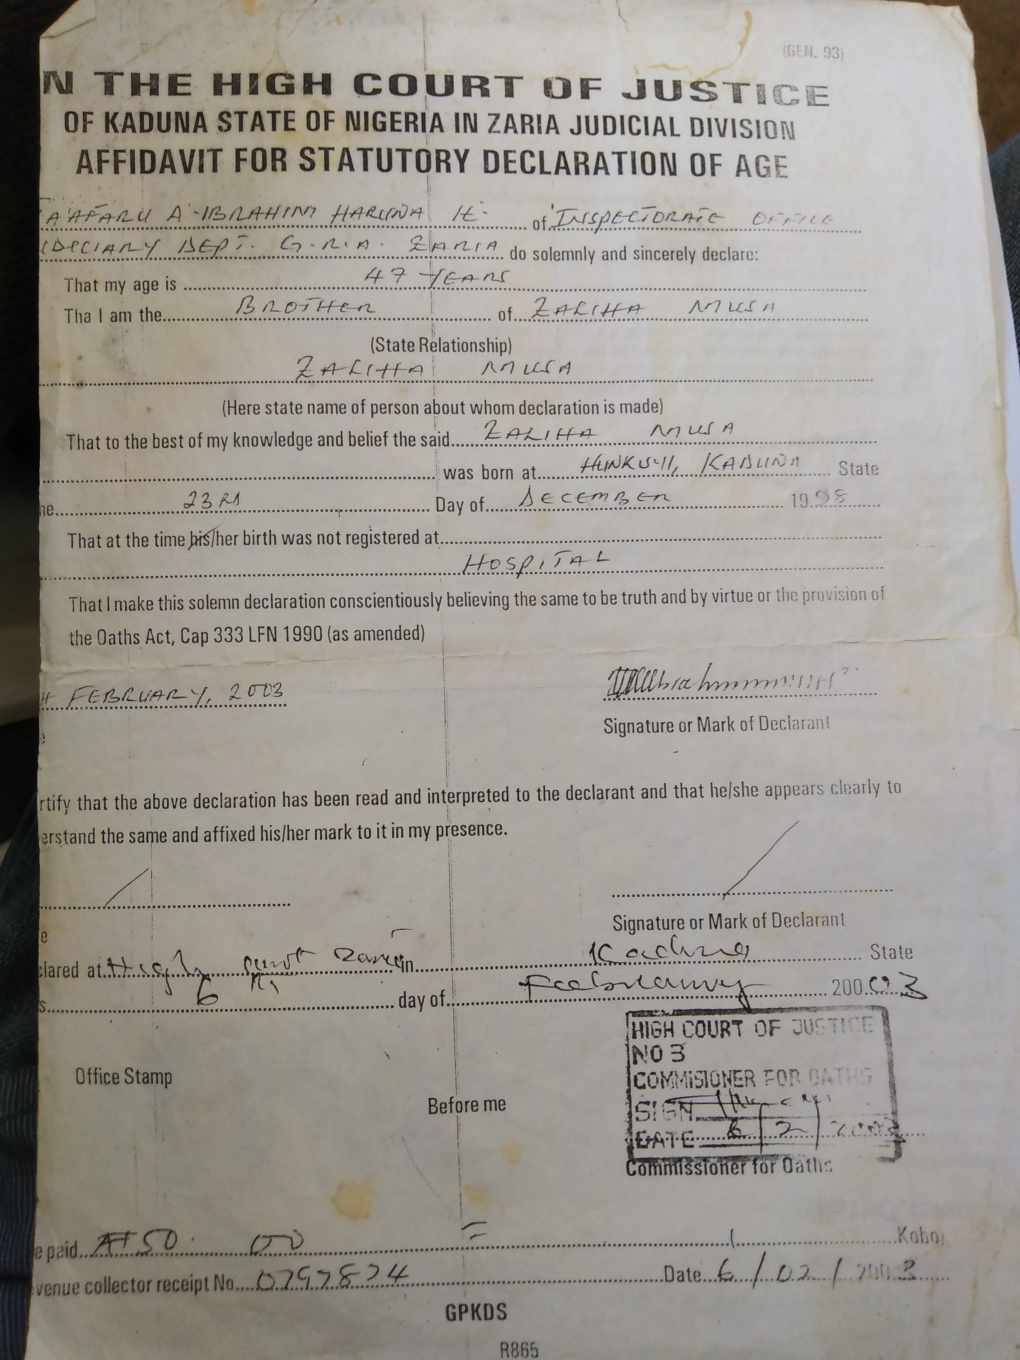 (GEN. 93)
N THE HIGH COURT OF JUSTICE
OF KADUNA STATE OF NIGERIA IN ZARIA JUDICIAL DIVISION
AFFIDAVIT FOR STATUTORY DECLARATION OF AGE
A'AFARU A. IBRAHIM HARUNA H. of INSPECTORATE OFFICE
DICIARY DEPT. G.R.A. ZARIA do solemnly and sincerely declare:
That my age is 47 YEARS
Tha I am the BROTHER of ZALIHA MUSA
(State Relationship)
ZALIHA MUSA
(Here state name of person about whom declaration is made)
That to the best of my knowledge and belief the said ZALIHA MUSA
was born at HUNKUYI, KADUNA State
he 23RD Day of DECEMBER 19
That at the time his/her birth was not registered at
HOSPITAL
That I make this solemn declaration conscientiously believing the same to be truth and by virtue or the provision of
the Oaths Act, Cap 333 LFN 1990 (as amended)
H FEBRUARY, 2003
Signature or Mark of Declarant
e
rtify that the above declaration has been read and interpreted to the declarant and that he/she appears clearly to
erstand the same and affixed his/her mark to it in my presence.
Signature or Mark of Declarant
e
clared at High Court Zaria in Kaduna State
s 6th day of February 200 03
HIGH COURT OF JUSTICE
NO 3
COMMISIONER FOR OATHS
SIGN
DATE 6/2/2003
Office Stamp
Before me
Commissioner for Oaths
e paid ₦50 00 = Kobo
venue collector receipt No. 0797874 Date 6/02/2003
GPKDS
R865